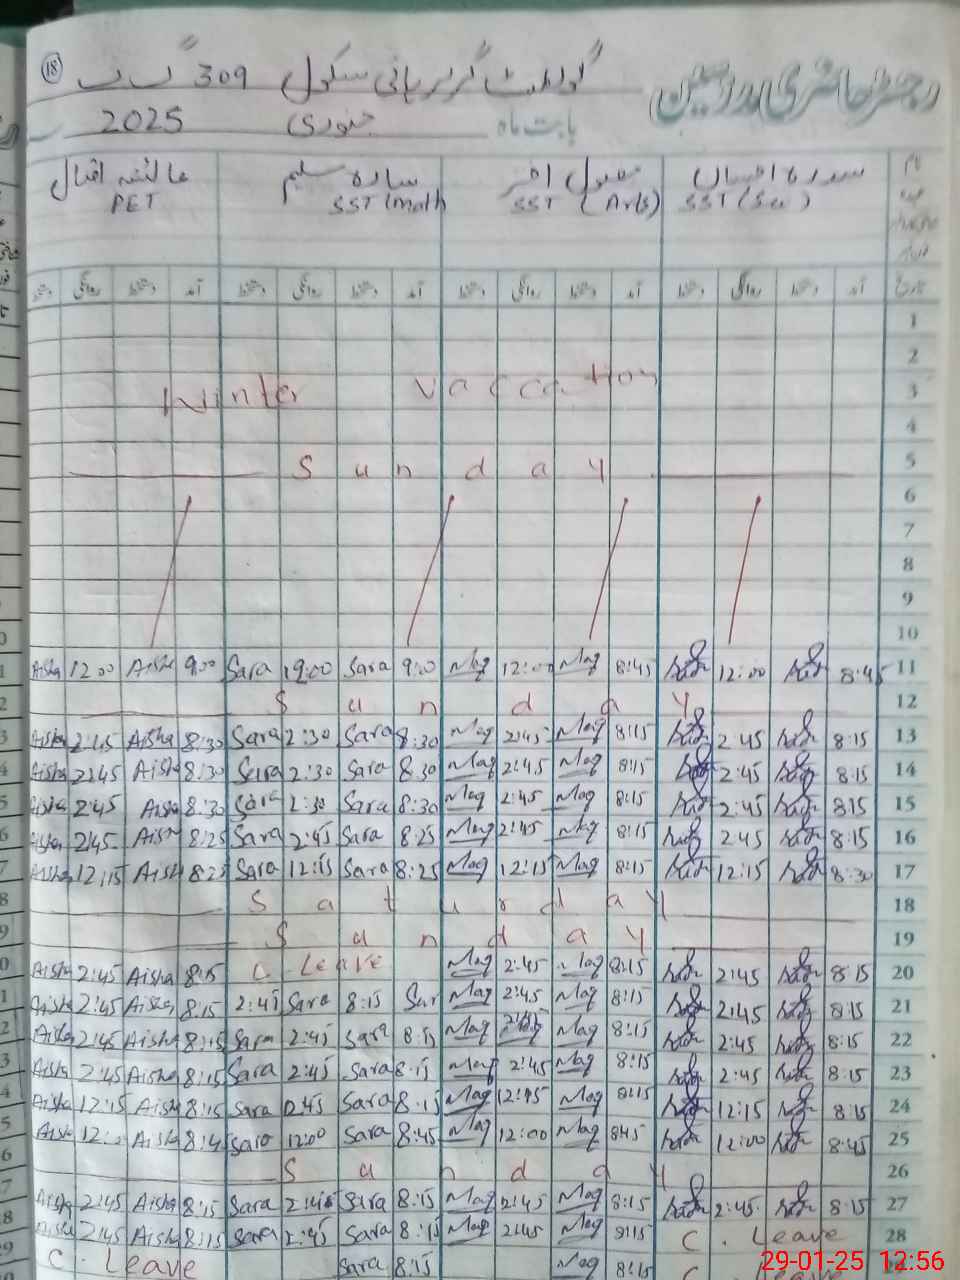 رجسٹر حاضری مدرسین گورنمنٹ گرلز ہائی سکول 309 گ ب 18
بابت ماہ جنوری 2025
نام سدرہ احسان اختر سارہ سلیم عائشہ اقبال
عہدہ SST (Sci) SST (Arts) SST (Math PET
تاریخ آمد دستخط روانگی دستخط آمد دستخط روانگی دستخط آمد دستخط روانگی دستخط آمد دستخط روانگی دستخط
1
2
Winter Vaccation 3
4
Sunday 5
6
7
8
9
10
Aisha 12:00 Aisha 9:00 Sara 12:00 Sara 9:0 Maq 12:00 Maq 8:45 12:00 8:45 11
Sunday 12
Aisha 2:45 Aisha 8:30 Sara 2:30 Sara 8:30 Maq 2:45 Maq 8:15 2:45 8:15 13
Aisha 2:45 Aisha 8:30 Sara 2:30 Sara 8:30 Maq 2:45 Maq 8:15 2:45 8:15 14
Aisha 2:45 Aisha 8:30 Sara 2:30 Sara 8:30 Maq 2:45 Maq 8:15 2:45 8:15 15
Aisha 2:45 Aisha 8:25 Sara 2:45 Sara 8:25 Maq 2:45 Maq 8:15 2:45 8:15 16
Aisha 12:15 Aisha 8:25 Sara 12:15 Sara 8:25 Maq 12:15 Maq 8:15 12:15 8:30 17
Saturday 18
Sunday 19
Aisha 2:45 Aisha 8:15 C. Leave Maq 2:45 Maq 8:15 2:45 8:15 20
Aisha 2:45 Aisha 8:15 2:45 Sara 8:15 Sar Maq 2:45 Maq 8:15 2:45 8:15 21
Aisha 2:45 Aisha 8:15 Sara 2:45 Sara 8:15 Maq Maq 8:15 2:45 8:15 22
Aisha 2:45 Aisha 8:15 Sara 2:45 Sara 8:15 Maq 2:45 Maq 8:15 2:45 8:15 23
Aisha 12:15 Aisha 8:15 Sara 2:45 Sara 8:15 Maq 12:15 Maq 8:15 12:15 8:15 24
Aisha 12: Aisha 8:4 Sara 12:00 Sara 8:45 Maq 12:00 Maq 8:45 12:00 8:45 25
Sunday 26
Aisha 2:45 Aisha 8:15 Sara 2:45 Sara 8:15 Maq 2:45 Maq 8:15 2:45 8:15 27
Aisha 2:45 Aisha 8:15 Sara 2:45 Sara 8:15 Maq 2:45 Maq 8:15 C. Leave 28
C. Leave Sara 8:15 Maq 8:15 C Leave
29-01-25 12:56